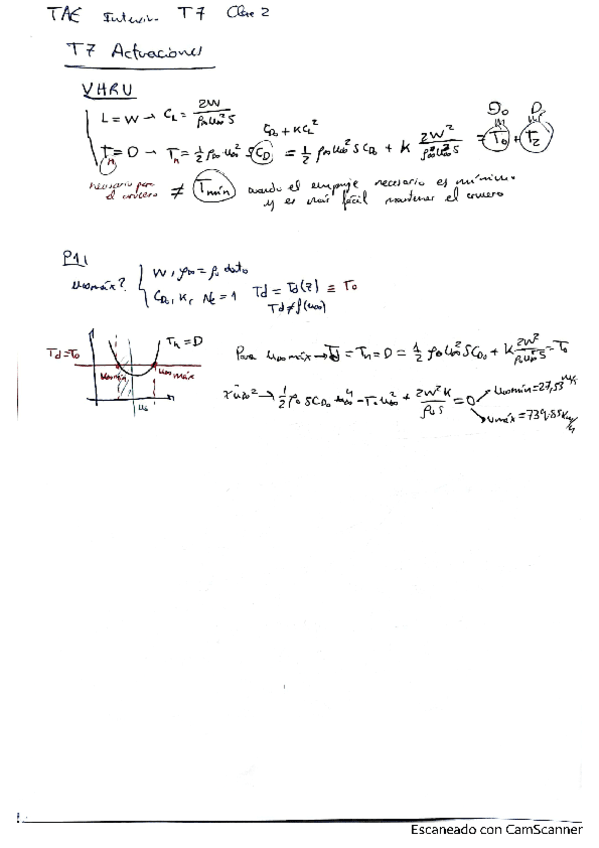 TAE T7 Clase 2
T7 Actuaciones
VHRU
L = W → C_L = 2W / ρ∞ u∞² S
C_D0 + K C_L²
D_0 D_i
T_n = D → T_n = 1/2 ρ∞ u∞² S C_D = 1/2 ρ∞ u∞² S C_D0 + K 2W² / ρ∞ u∞² S = T_0 + T_2
necesario para el crucero ≠ T_mín cuando el empuje necesario es mínimo
y es más fácil mantener el crucero
P1.1
u∞ máx? W, ρ∞ = ρ_0 dato
C_D0, K, = 1 Td = Td(z) ≡ T_0
Td ≠ f(u∞)
Td = T_0 T_n = D
u∞ mín u∞ máx
Para u∞ máx → Td = T_n = D = 1/2 ρ_0 u∞² S C_D0 + K 2W² / ρ_0 u∞² S = T_0
x u∞² → 1/2 ρ_0 S C_D0 u∞⁴ - T_0 u∞² + 2W² K / ρ_0 S = 0
u∞ mín = 27,53 m/s
u máx = 739.85 km/h
Escaneado con CamScanner